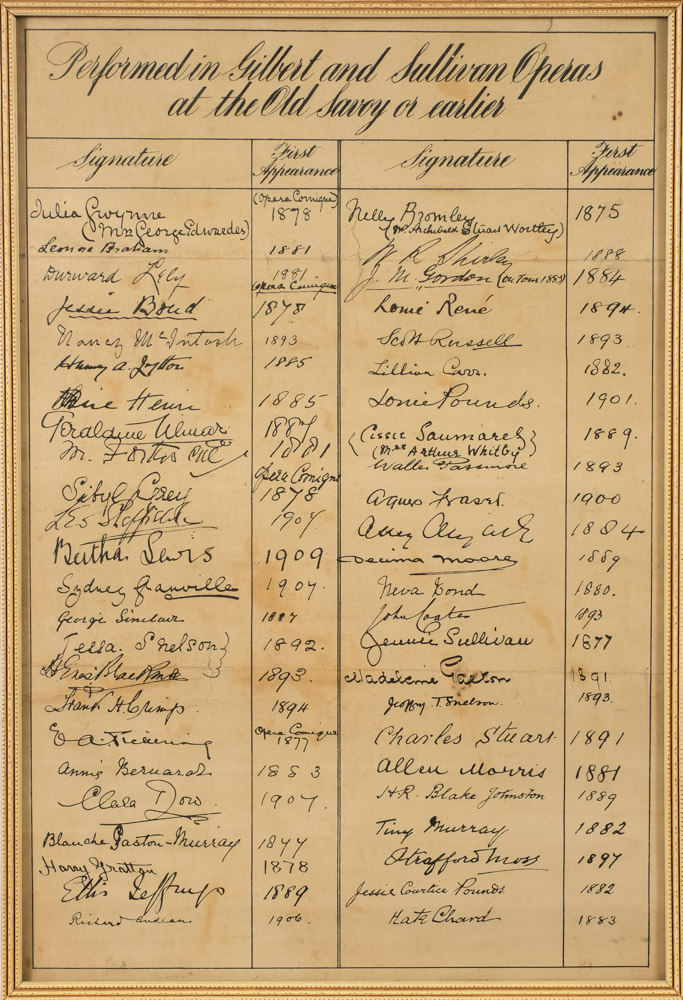 Performed in Gilbert and Sullivan Operas
at the Old Savoy or earlier
Signature First Appearance
Julia Gwynne (Opera Comique) 1878
(Mrs George Edwardes)
Leonora Braham 1881
Durward Lely 1881
Jessie Bond Opera Comique 1878
Nancy McIntosh 1893
Henry A. Lytton 1885
Henri 1885
Geraldine Ulmar 1887
Mr. 1881
Sibyl Grey Opera Comique 1878
Leo Sheffield 1907
Bertha Lewis 1909
Sydney Granville 1907
George Sinclair 1887
Tessa Snelson 1892.
H Enes Blackmore 1893.
Frank H. Crimp. 1894
E A Pickering Opera Comique 1877
Annie Bernard 1883
Clara Dow. 1907.
Blanche Gaston-Murray 1877
Harry Grattan 1878
Ellis Jeffreys 1889
Richard Andean 1906.
Signature First Appearance
Nelly Bromley 1875
(Mrs Archibald Stuart Wortley)
W R Shirley 1888
J. M. Gordon (on Tour 1883) 1884
Louie René 1894.
Scott Russell 1893
Lillian Carr. 1882.
Louie Pounds. 1901.
(Cissie Saumarez) 1889.
(Mrs Arthur Whitby)
Walter Passmore 1893
Agnes Fraser. 1900
1884
Decima Moore 1889
Neva Bond 1880.
John Coates 1893
Jennie Sullivan 1877
Madeleine Gaston 1891.
Jeoffry T. Snelson. 1893.
Charles Stuart 1891
Allen Morris 1881
H.R. Blake Johnston 1889
Tiny Murray 1882
Strafford Moss 1897
Jessie Courtice Pounds. 1882
Kate Chard 1883